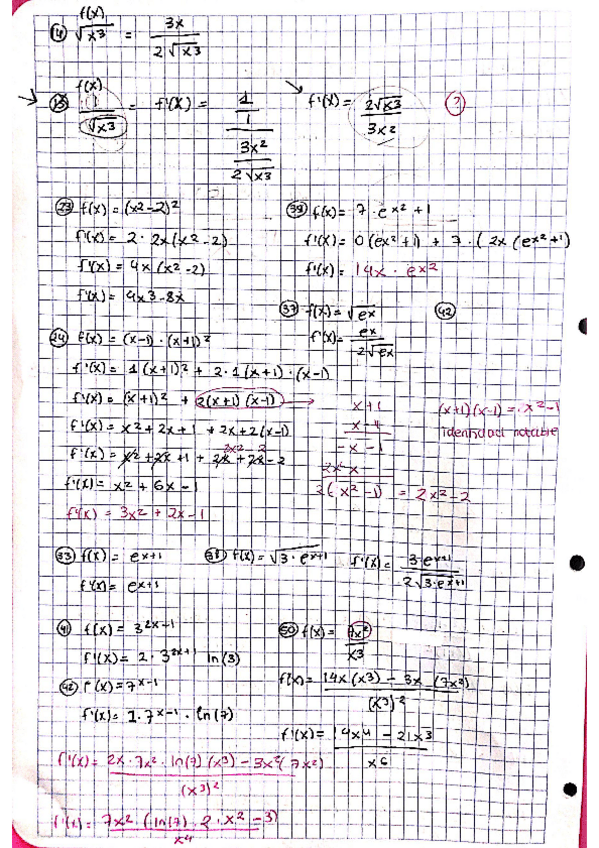 f(x)
14 √x3 = 3x / 2√x3
f(x)
15 1 / √x3 = f'(x) = 1 / 1 / 3x2 / 2√x3
f'(x) = 2√x3 / 3x2 ?
23 f(x) = (x2-2)2
f'(x) = 2 · 2x(x2-2)
f'(x) = 4x(x2-2)
f'(x) = 4x3-8x
39 f(x) = 7 · ex2 + 1
f'(x) = 0(ex2+1) + 7 · (2x(ex2+1)
f'(x) = 14x · ex2
37 f(x) = √ex
f'(x) = ex / 2√ex
42
24 f(x) = (x-1) · (x+1)2
f'(x) = 1(x+1)2 + 2·1(x+1) · (x-1)
f'(x) = (x+1)2 + 2(x+1)(x-1)
f'(x) = x2+2x+1 +2x+2(x-1)
3x2 - 2
f'(x) = x2+2x+1 + 2x+2x-2
f'(x) = x2 + 6x - 1
f'(x) = 3x2 + 2x - 1
x+1
x-1
-x-1
2(x2-1) = 2x2-2
(x+1)(x-1) = x2-1
Identidad notable
33 f(x) = ex+1
f'(x) = ex+1
f(x) = √3·ex+1
f'(x) = 3·ex+1 / 2√3·ex+1
41 f(x) = 32x-1
f'(x) = 2·32x+1 ln(3)
42 f(x) = 7x-1
f'(x) = 1·7x-1 · ln(7)
50 f(x) = 7x2 / x3
f'(x) = 14x(x3) - 3x(7x2) / (x3)2
f'(x) = 14x4 - 21x3 / x6
f'(x) = 2x·7x2·ln(7)(x3) - 3x2(7x2) / (x3)2
f'(x) = 7x2·(ln(7)·2·x2-3) / x4